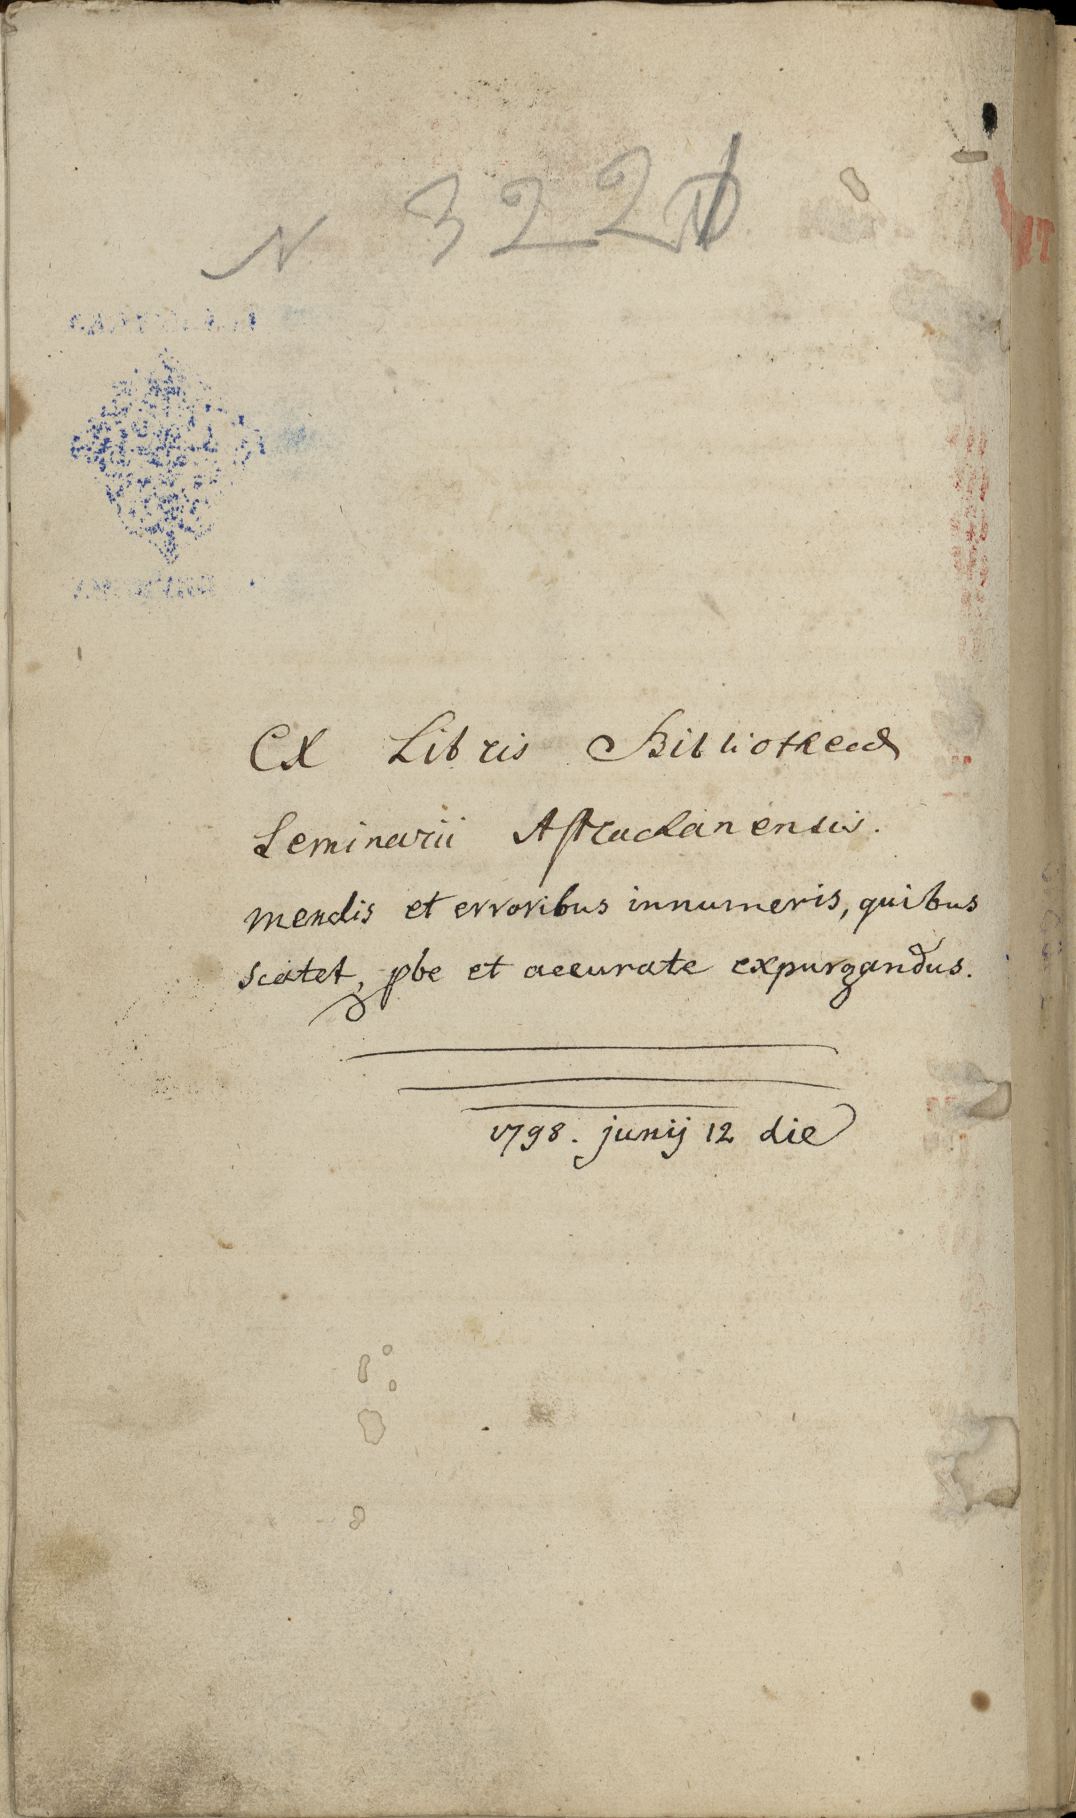 N 322
Ex Libris Bibliothecæ
Seminarii Astrachanensis.
mendis et erroribus innumeris, quibus
scatet, pbe et accurate expurgandus.
1798. junij 12 die